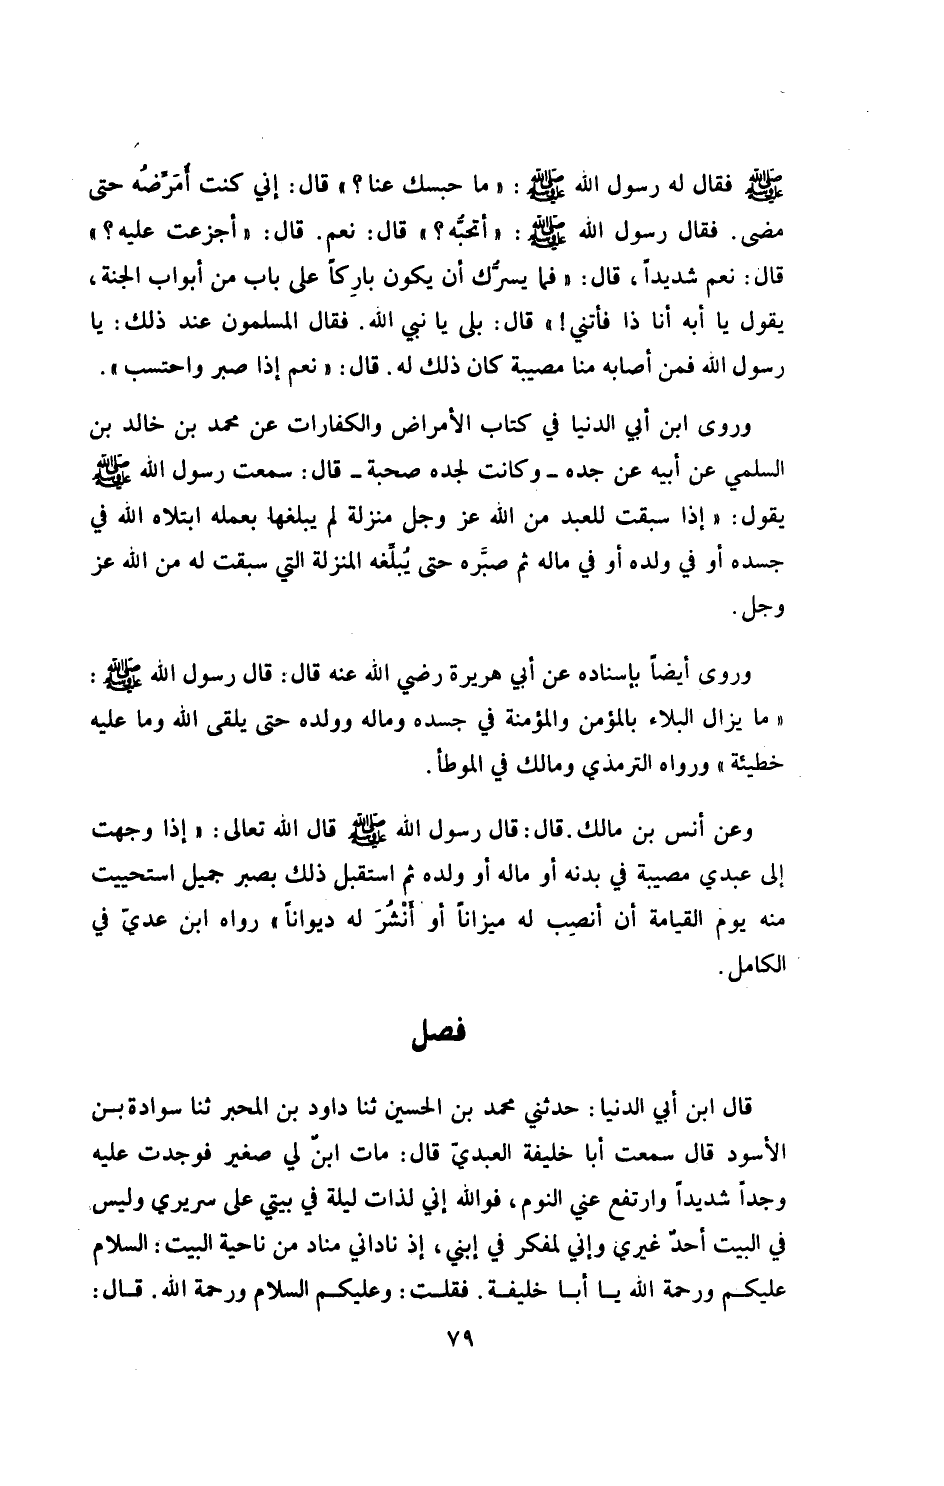 ﷺ فقال له رسول الله ﷺ : « ما حبسك عنا ؟ » قال : إني كنت أُمَرِّضُه حتى
مضى . فقال رسول الله ﷺ : « أتحبُّه ؟ » قال : نعم . قال : « أجزعت عليه ؟ »
قال : نعم شديداً ، قال : « فما يسرُّك أن يكون باركاً على باب من أبواب الجنة ،
يقول يا أبه أنا ذا فأتني ! » قال : بلى يا نبي الله . فقال المسلمون عند ذلك : يا
رسول الله فمن أصابه منا مصيبة كان ذلك له . قال : « نعم إذا صبر واحتسب » .
وروى ابن أبي الدنيا في كتاب الأمراض والكفارات عن محمد بن خالد بن
السلمي عن أبيه عن جده ـ وكانت لجده صحبة ـ قال : سمعت رسول الله ﷺ
يقول : « إذا سبقت للعبد من الله عز وجل منزلة لم يبلغها بعمله ابتلاه الله في
جسده أو في ولده أو في ماله ثم صبَّره حتى يُبلِّغه المنزلة التي سبقت له من الله عز
وجل .
وروى أيضاً بإسناده عن أبي هريرة رضي الله عنه قال : قال رسول الله ﷺ :
« ما يزال البلاء بالمؤمن والمؤمنة في جسده وماله وولده حتى يلقى الله وما عليه
خطيئة » ورواه الترمذي ومالك في الموطأ .
وعن أنس بن مالك . قال : قال رسول الله ﷺ قال الله تعالى : « إذا وجهت
إلى عبدي مصيبة في بدنه أو ماله أو ولده ثم استقبل ذلك بصبر جميل استحييت
منه يوم القيامة أن أنصب له ميزاناً أو أَنْشُرَ له ديواناً » رواه ابن عديّ في
الكامل .
فصل
قال ابن أبي الدنيا : حدثني محمد بن الحسين ثنا داود بن المحبر ثنا سوادة بـن
الأسود قال سمعت أبا خليفة العبديّ قال : مات ابنٌ لي صغير فوجدت عليه
وجداً شديداً وارتفع عني النوم ، فوالله إني لذات ليلة في بيتي على سريري وليس
في البيت أحدٌ غيري وإني لمفكر في إبني ، إذ ناداني مناد من ناحية البيت : السلام
عليكـم ورحمة الله يـا أبـا خليفـة . فقلـت : وعليكـم السلام ورحمة الله . قـال :
٧٩